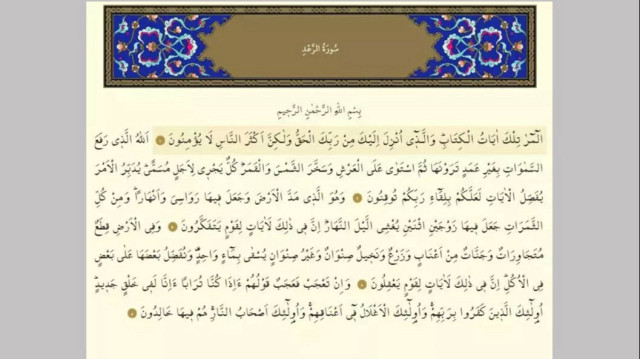 سُورَةُ الرَّعْدِ
بِسْمِ اللّٰهِ الرَّحْمٰنِ الرَّحِيمِ
الٓمٓرٰ تِلْكَ اٰيَاتُ الْكِتَابِۜ وَالَّـذٓى اُنْزِلَ اِلَيْكَ مِنْ رَبِّكَ الْحَقُّ وَلٰكِنَّ اَكْثَرَ النَّاسِ لَا يُؤْمِنُونَ ۝ اَللّٰهُ الَّذٖى رَفَعَ
السَّمٰوَاتِ بِغَيْرِ عَمَدٍ تَرَوْنَهَا ثُمَّ اسْتَوٰى عَلَى الْعَرْشِ وَسَخَّرَ الشَّمْسَ وَالْقَمَرَۜ كُلٌّ يَجْرٖى لِاَجَلٍ مُسَمًّىۜ يُدَبِّرُ الْاَمْرَ
يُفَصِّلُ الْاٰيَاتِ لَعَلَّكُمْ بِلِقَٓاءِ رَبِّكُمْ تُوقِنُونَ ۝ وَهُوَ الَّذٖى مَدَّ الْاَرْضَ وَجَعَلَ فٖيهَا رَوَاسِىَ وَاَنْهَارًاۜ وَمِنْ كُلِّ
الثَّمَرَاتِ جَعَلَ فٖيهَا زَوْجَيْنِ اثْنَيْنِ يُغْشِى الَّيْلَ النَّهَارَۜ اِنَّ فٖى ذٰلِكَ لَاٰيَاتٍ لِقَوْمٍ يَتَفَكَّرُونَ ۝ وَفِى الْاَرْضِ قِطَعٌ
مُتَجَاوِرَاتٌ وَجَنَّاتٌ مِنْ اَعْنَابٍ وَزَرْعٌ وَنَخٖيلٌ صِنْوَانٌ وَغَيْرُ صِنْوَانٍ يُسْقٰى بِمَٓاءٍ وَاحِدٍ۠ وَنُفَضِّلُ بَعْضَهَا عَلٰى بَعْضٍ
فِى الْاُكُلِۜ اِنَّ فٖى ذٰلِكَ لَاٰيَاتٍ لِقَوْمٍ يَعْقِلُونَ ۝ وَاِنْ تَعْجَبْ فَعَجَبٌ قَوْلُهُمْ ءَاِذَا كُنَّا تُرَابًا ءَاِنَّا لَفٖى خَلْقٍ جَدٖيدٍۜ
اُو۬لٰٓئِكَ الَّذٖينَ كَفَرُوا بِرَبِّهِمْۚ وَاُو۬لٰٓئِكَ الْاَغْلَالُ فٖٓى اَعْنَاقِهِمْۚ وَاُو۬لٰٓئِكَ اَصْحَابُ النَّارِۚ هُمْ فٖيهَا خَالِدُونَ ۝